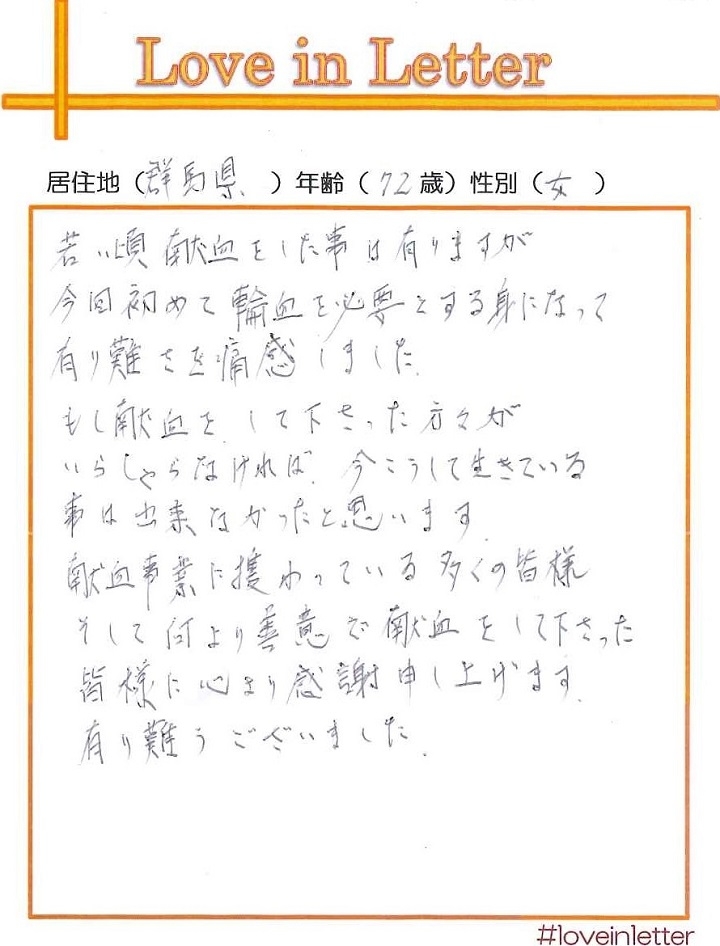 Love in Letter
居住地（群馬県）年齢（72歳）性別（女）
若い頃献血をした事は有りますが
今回初めて輸血を必要とする身になって
有り難さを痛感しました.
もし献血をして下さった方々が
いらしゃらなければ、今こうして生きている
事は出来なかったと思います.
献血事業に携わっている多くの皆様
そして何より善意で献血をして下さった
皆様に心より感謝申し上げます.
有り難うございました.
#loveinletter